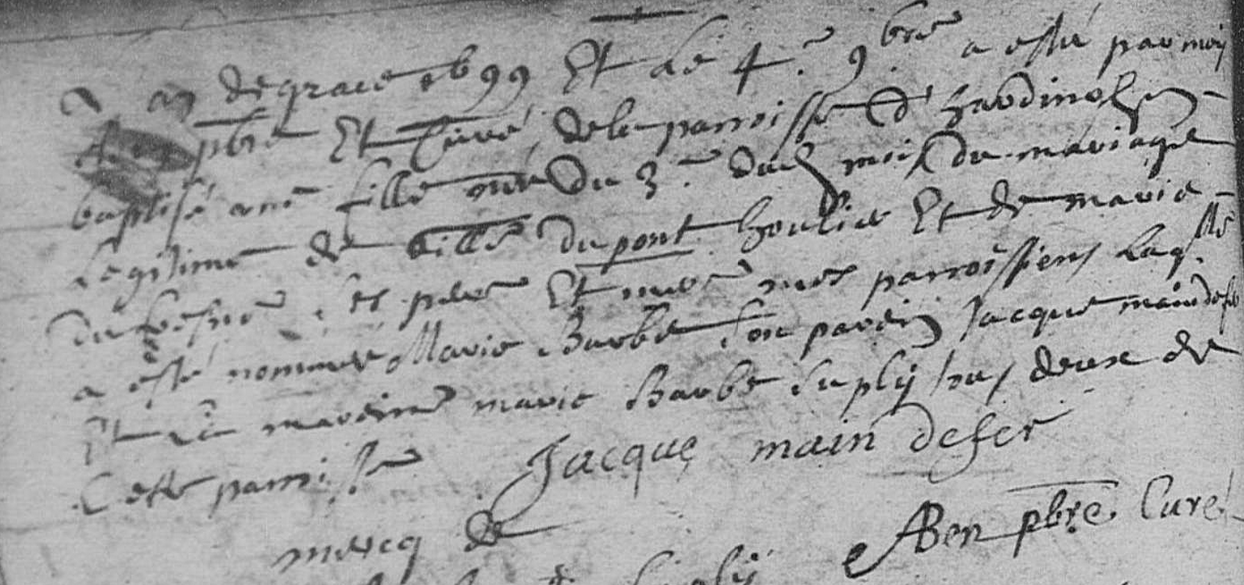 L an de grace 1699 Et Le 4.e 9bre a esté par moy
pbre Et Curé de la parroisse d hardinghen
baptisé une fille née du 3.e dud mois du mariage
Legitime de Gille Dupont houlier Et de marie
Dufresne ses pere Et mere mes parroissiens Laqlle
a esté nommée Marie Barbe son parein Jacque maindefer
Et La mareine marie Barbe Suplÿ tous deux de
Cette parroisse Jacque main defer
mercq de ABen pbre Curé